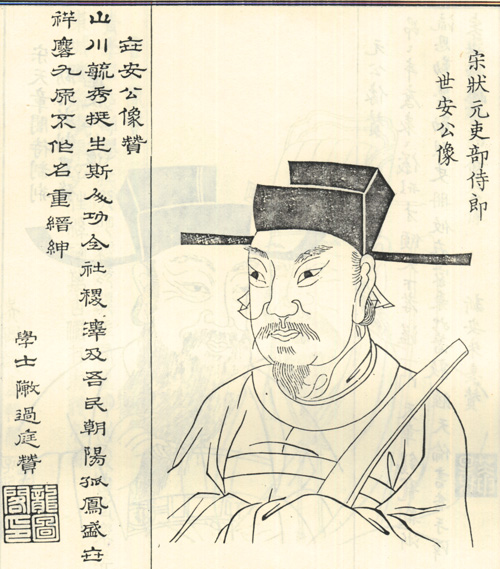 宋狀元吏部侍郎
世安公像
世安公像贊
山川毓秀挺生斯人功全社稷澤及吾民朝陽孤鳳盛世
祥麐九原不作名重縉紳
學士陳過庭贊
龍圖
閣印